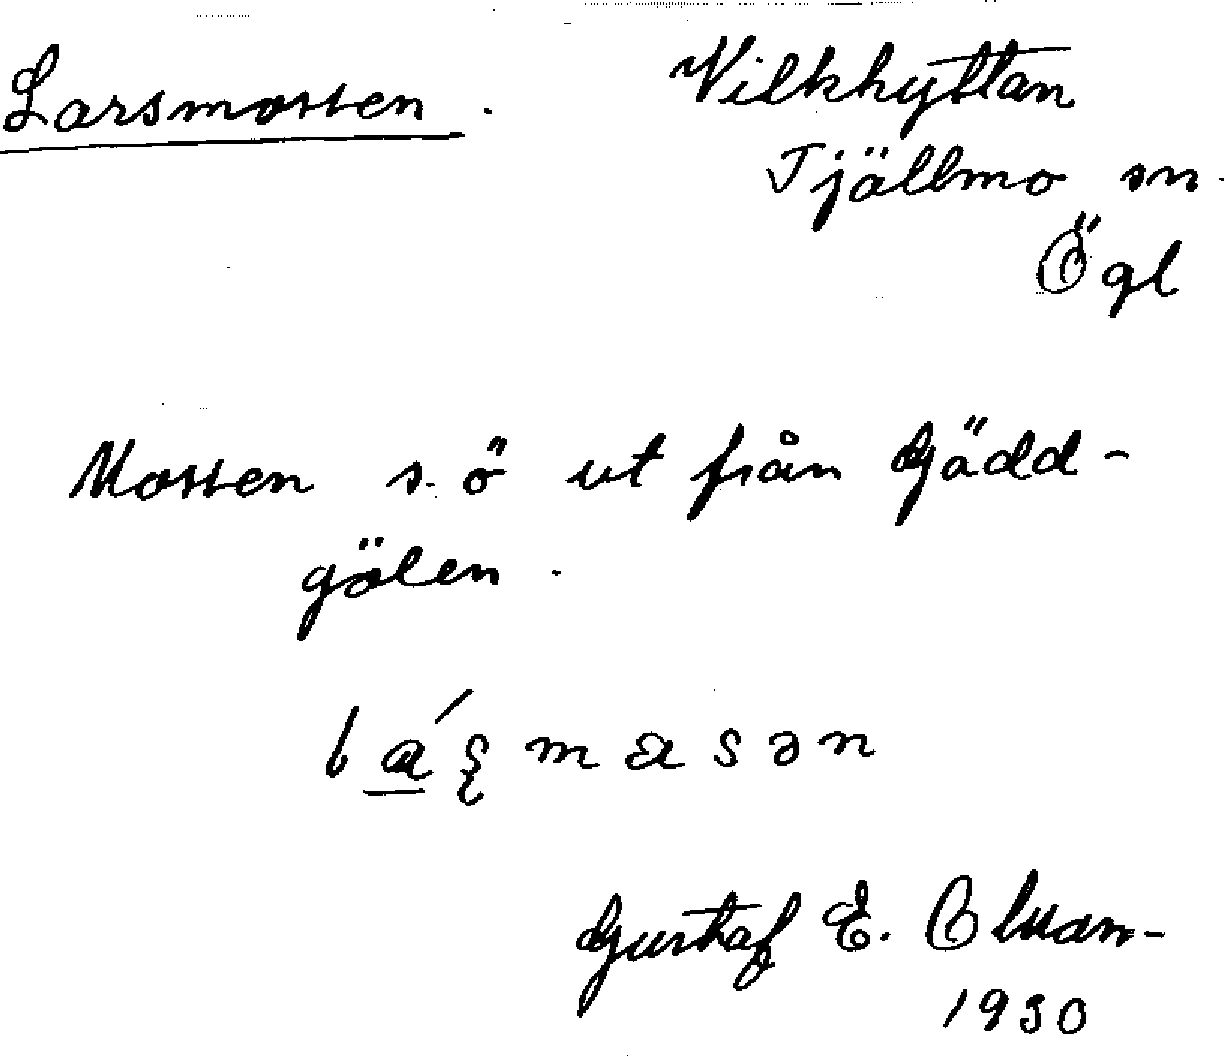 Larsmossen.
Vilkhyttan
Tjällmo sn.
Ögl
Mossen s. ö ut från Gädd-
gölen.
Gustaf E.
1930